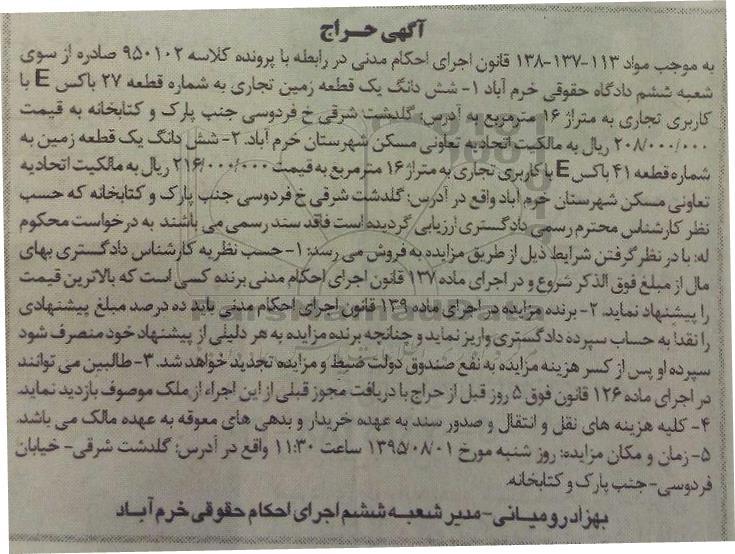 آگهی حراج
به موجب مواد ۱۱۳-۱۳۷-۱۳۸ قانون اجرای احکام مدنی در رابطه با پرونده کلاسه ۹۵۰۱۰۲ صادره از سوی
شعبه ششم دادگاه حقوقی خرم آباد ۱- شش دانگ یک قطعه زمین تجاری به شماره قطعه ۲۷ باکس E با
کاربری تجاری به متراژ ۱۶ مترمربع به آدرس: گلدشت شرقی خ فردوسی جنب پارک و کتابخانه به قیمت
۲۰۸/۰۰۰/۰۰۰ ریال به مالکیت اتحادیه تعاونی مسکن شهرستان خرم آباد. ۲- شش دانگ یک قطعه زمین به
شماره قطعه ۴۱ باکس E با کاربری تجاری به متراژ ۱۶ مترمربع به قیمت ۲۱۶/۰۰۰/۰۰۰ ریال به مالکیت اتحادیه
تعاونی مسکن شهرستان خرم آباد واقع در آدرس: گلدشت شرقی خ فردوسی جنب پارک و کتابخانه که حسب
نظر کارشناس محترم رسمی دادگستری ارزیابی گردیده است فاقد سند رسمی می باشند به درخواست محکوم
له: با در نظر گرفتن شرایط ذیل از طریق مزایده به فروش می رسد: ۱- حسب نظریه کارشناس دادگستری بهای
مال از مبلغ فوق الذکر شروع و در اجرای ماده ۱۳۷ قانون اجرای احکام مدنی برنده کسی است که بالاترین قیمت
را پیشنهاد نماید. ۲- برنده مزایده در اجرای ماده ۱۳۹ قانون اجرای احکام مدنی باید ده درصد مبلغ پیشنهادی
را نقدا به حساب سپرده دادگستری واریز نماید و چنانچه برنده مزایده به هر دلیلی از پیشنهاد خود منصرف شود
سپرده او پس از کسر هزینه مزایده به نفع صندوق دولت ضبط و مزایده تجدید خواهد شد. ۳- طالبین می توانند
در اجرای ماده ۱۲۶ قانون فوق ۵ روز قبل از حراج با دریافت مجوز قبلی از این اجراء از ملک موصوف بازدید نماید.
۴- کلیه هزینه های نقل و انتقال و صدور سند به عهده خریدار و بدهی های معوقه به عهده مالک می باشد.
۵- زمان و مکان مزایده: روز شنبه مورخ ۱۳۹۵/۰۸/۰۱ ساعت ۱۱:۳۰ واقع در آدرس: گلدشت شرقی- خیابان
فردوسی- جنب پارک و کتابخانه.
بهزاد رومیانی- مدیر شعبه ششم اجرای احکام حقوقی خرم آباد